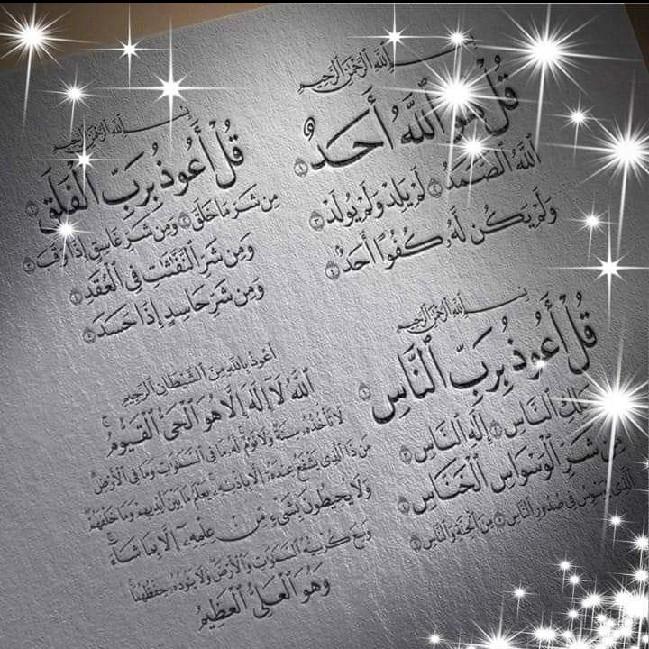 بِسْمِ ٱللَّهِ ٱلرَّحْمَٰنِ ٱلرَّحِيمِ
قُلْ هُوَ ٱللَّهُ أَحَدٌ ١
ٱللَّهُ ٱلصَّمَدُ ٢ لَمْ يَلِدْ وَلَمْ يُولَدْ ٣
وَلَمْ يَكُن لَّهُۥ كُفُوًا أَحَدٌۢ ٤
بِسْمِ ٱللَّهِ ٱلرَّحْمَٰنِ ٱلرَّحِيمِ
قُلْ أَعُوذُ بِرَبِّ ٱلْفَلَقِ ١
مِن شَرِّ مَا خَلَقَ ٢ وَمِن شَرِّ غَاسِقٍ إِذَا وَقَبَ ٣
وَمِن شَرِّ ٱلنَّفَّٰثَٰتِ فِى ٱلْعُقَدِ ٤
وَمِن شَرِّ حَاسِدٍ إِذَا حَسَدَ ٥
بِسْمِ ٱللَّهِ ٱلرَّحْمَٰنِ ٱلرَّحِيمِ
قُلْ أَعُوذُ بِرَبِّ ٱلنَّاسِ ١
مَلِكِ ٱلنَّاسِ ٢ إِلَٰهِ ٱلنَّاسِ ٣
مِن شَرِّ ٱلْوَسْوَاسِ ٱلْخَنَّاسِ ٤
ٱلَّذِى يُوَسْوِسُ فِى صُدُورِ ٱلنَّاسِ ٥ مِنَ ٱلْجِنَّةِ وَٱلنَّاسِ ٦
أعوذ بالله من الشيطان الرجيم
ٱللَّهُ لَآ إِلَٰهَ إِلَّا هُوَ ٱلْحَىُّ ٱلْقَيُّومُ
لَا تَأْخُذُهُۥ سِنَةٌ وَلَا نَوْمٌ لَّهُۥ مَا فِى ٱلسَّمَٰوَٰتِ وَمَا فِى ٱلْأَرْضِ
مَن ذَا ٱلَّذِى يَشْفَعُ عِندَهُۥٓ إِلَّا بِإِذْنِهِۦ يَعْلَمُ مَا بَيْنَ أَيْدِيهِمْ وَمَا خَلْفَهُمْ
وَلَا يُحِيطُونَ بِشَىْءٍ مِّنْ عِلْمِهِۦٓ إِلَّا بِمَا شَآءَ
وَسِعَ كُرْسِيُّهُ ٱلسَّمَٰوَٰتِ وَٱلْأَرْضَ وَلَا يَـُٔودُهُۥ حِفْظُهُمَا
وَهُوَ ٱلْعَلِىُّ ٱلْعَظِيمُ